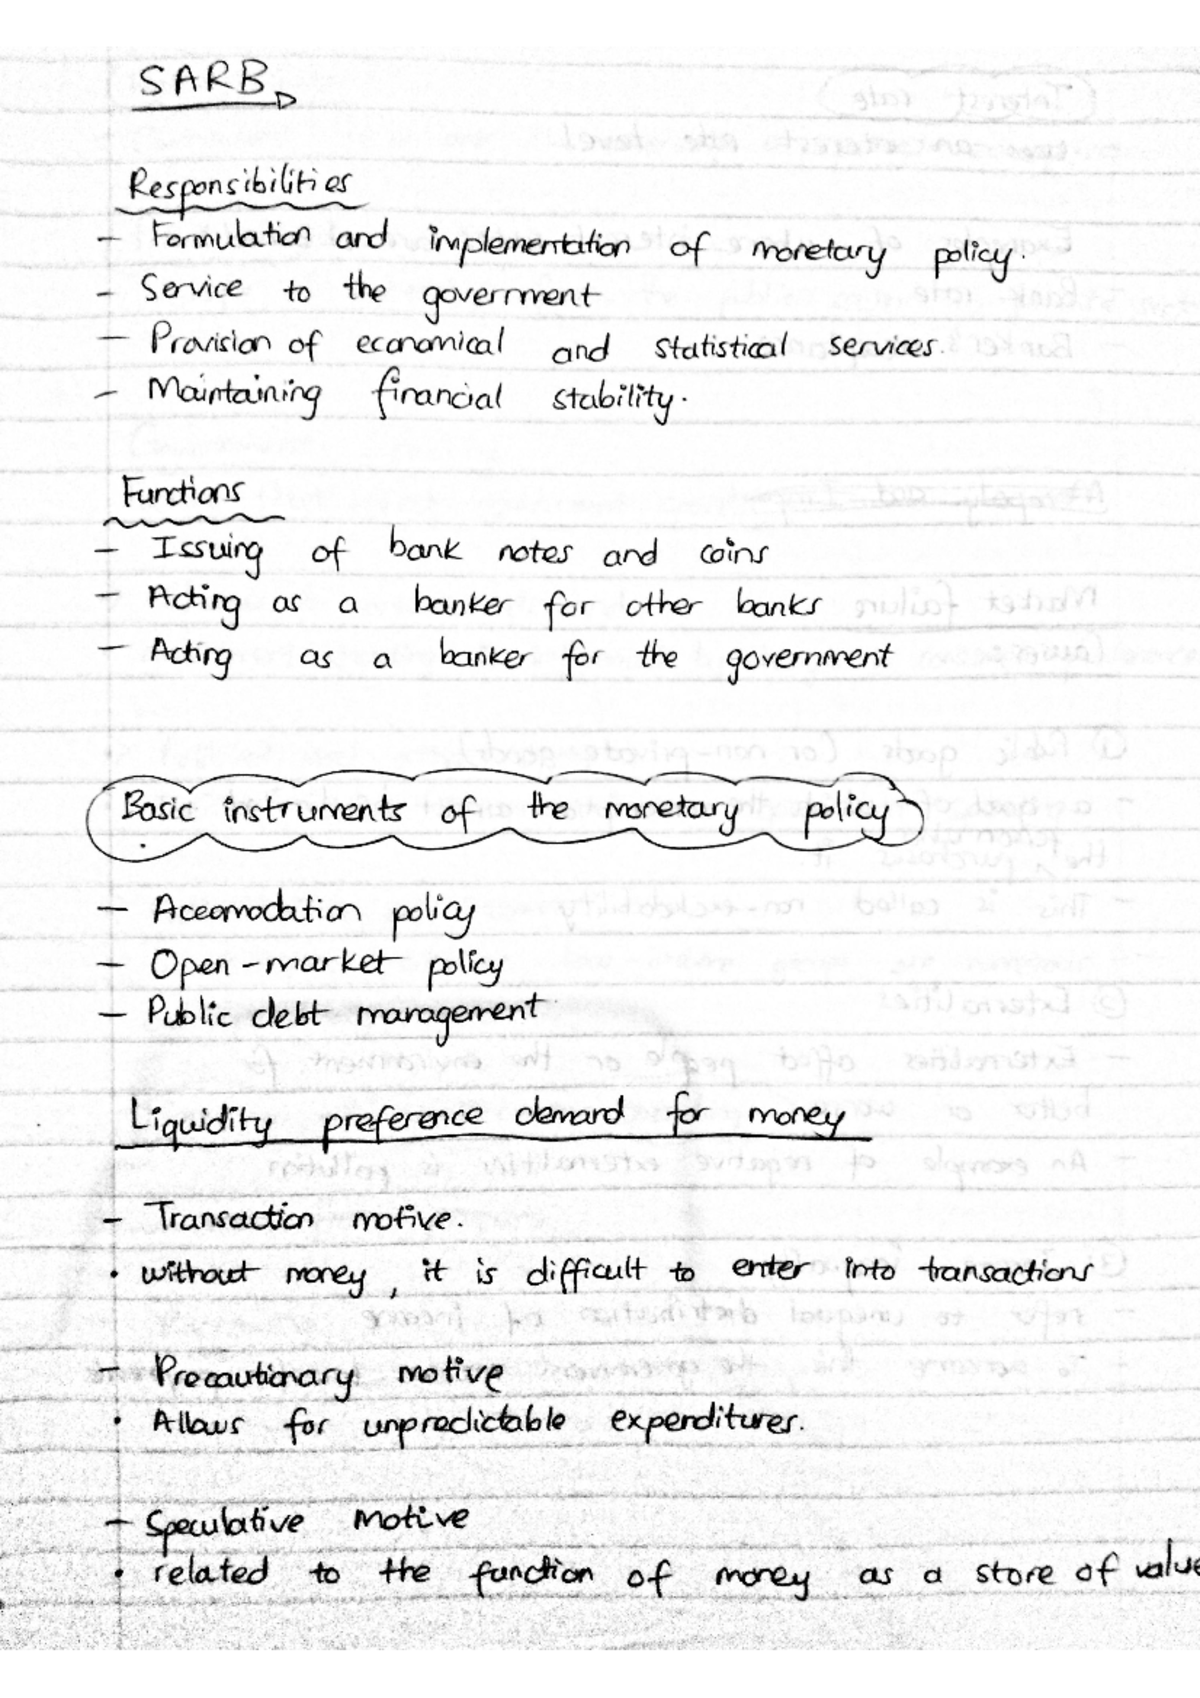 SARB
Responsibilities
- Formulation and implementation of monetary policy.
- Service to the government
- Provision of economical and statistical services.
- Maintaining financial stability.
Functions
- Issuing of bank notes and coins
- Acting as a banker for other banks
- Acting as a banker for the government
Basic instruments of the monetary policy
- Accomodation policy
- Open-market policy
- Public debt management
Liquidity preference demand for money
- Transaction motive.
• without money, it is difficult to enter into transactions
- Precautionary motive
• Allows for unpredictable expenditures.
- Speculative motive
• related to the function of money as a store of value